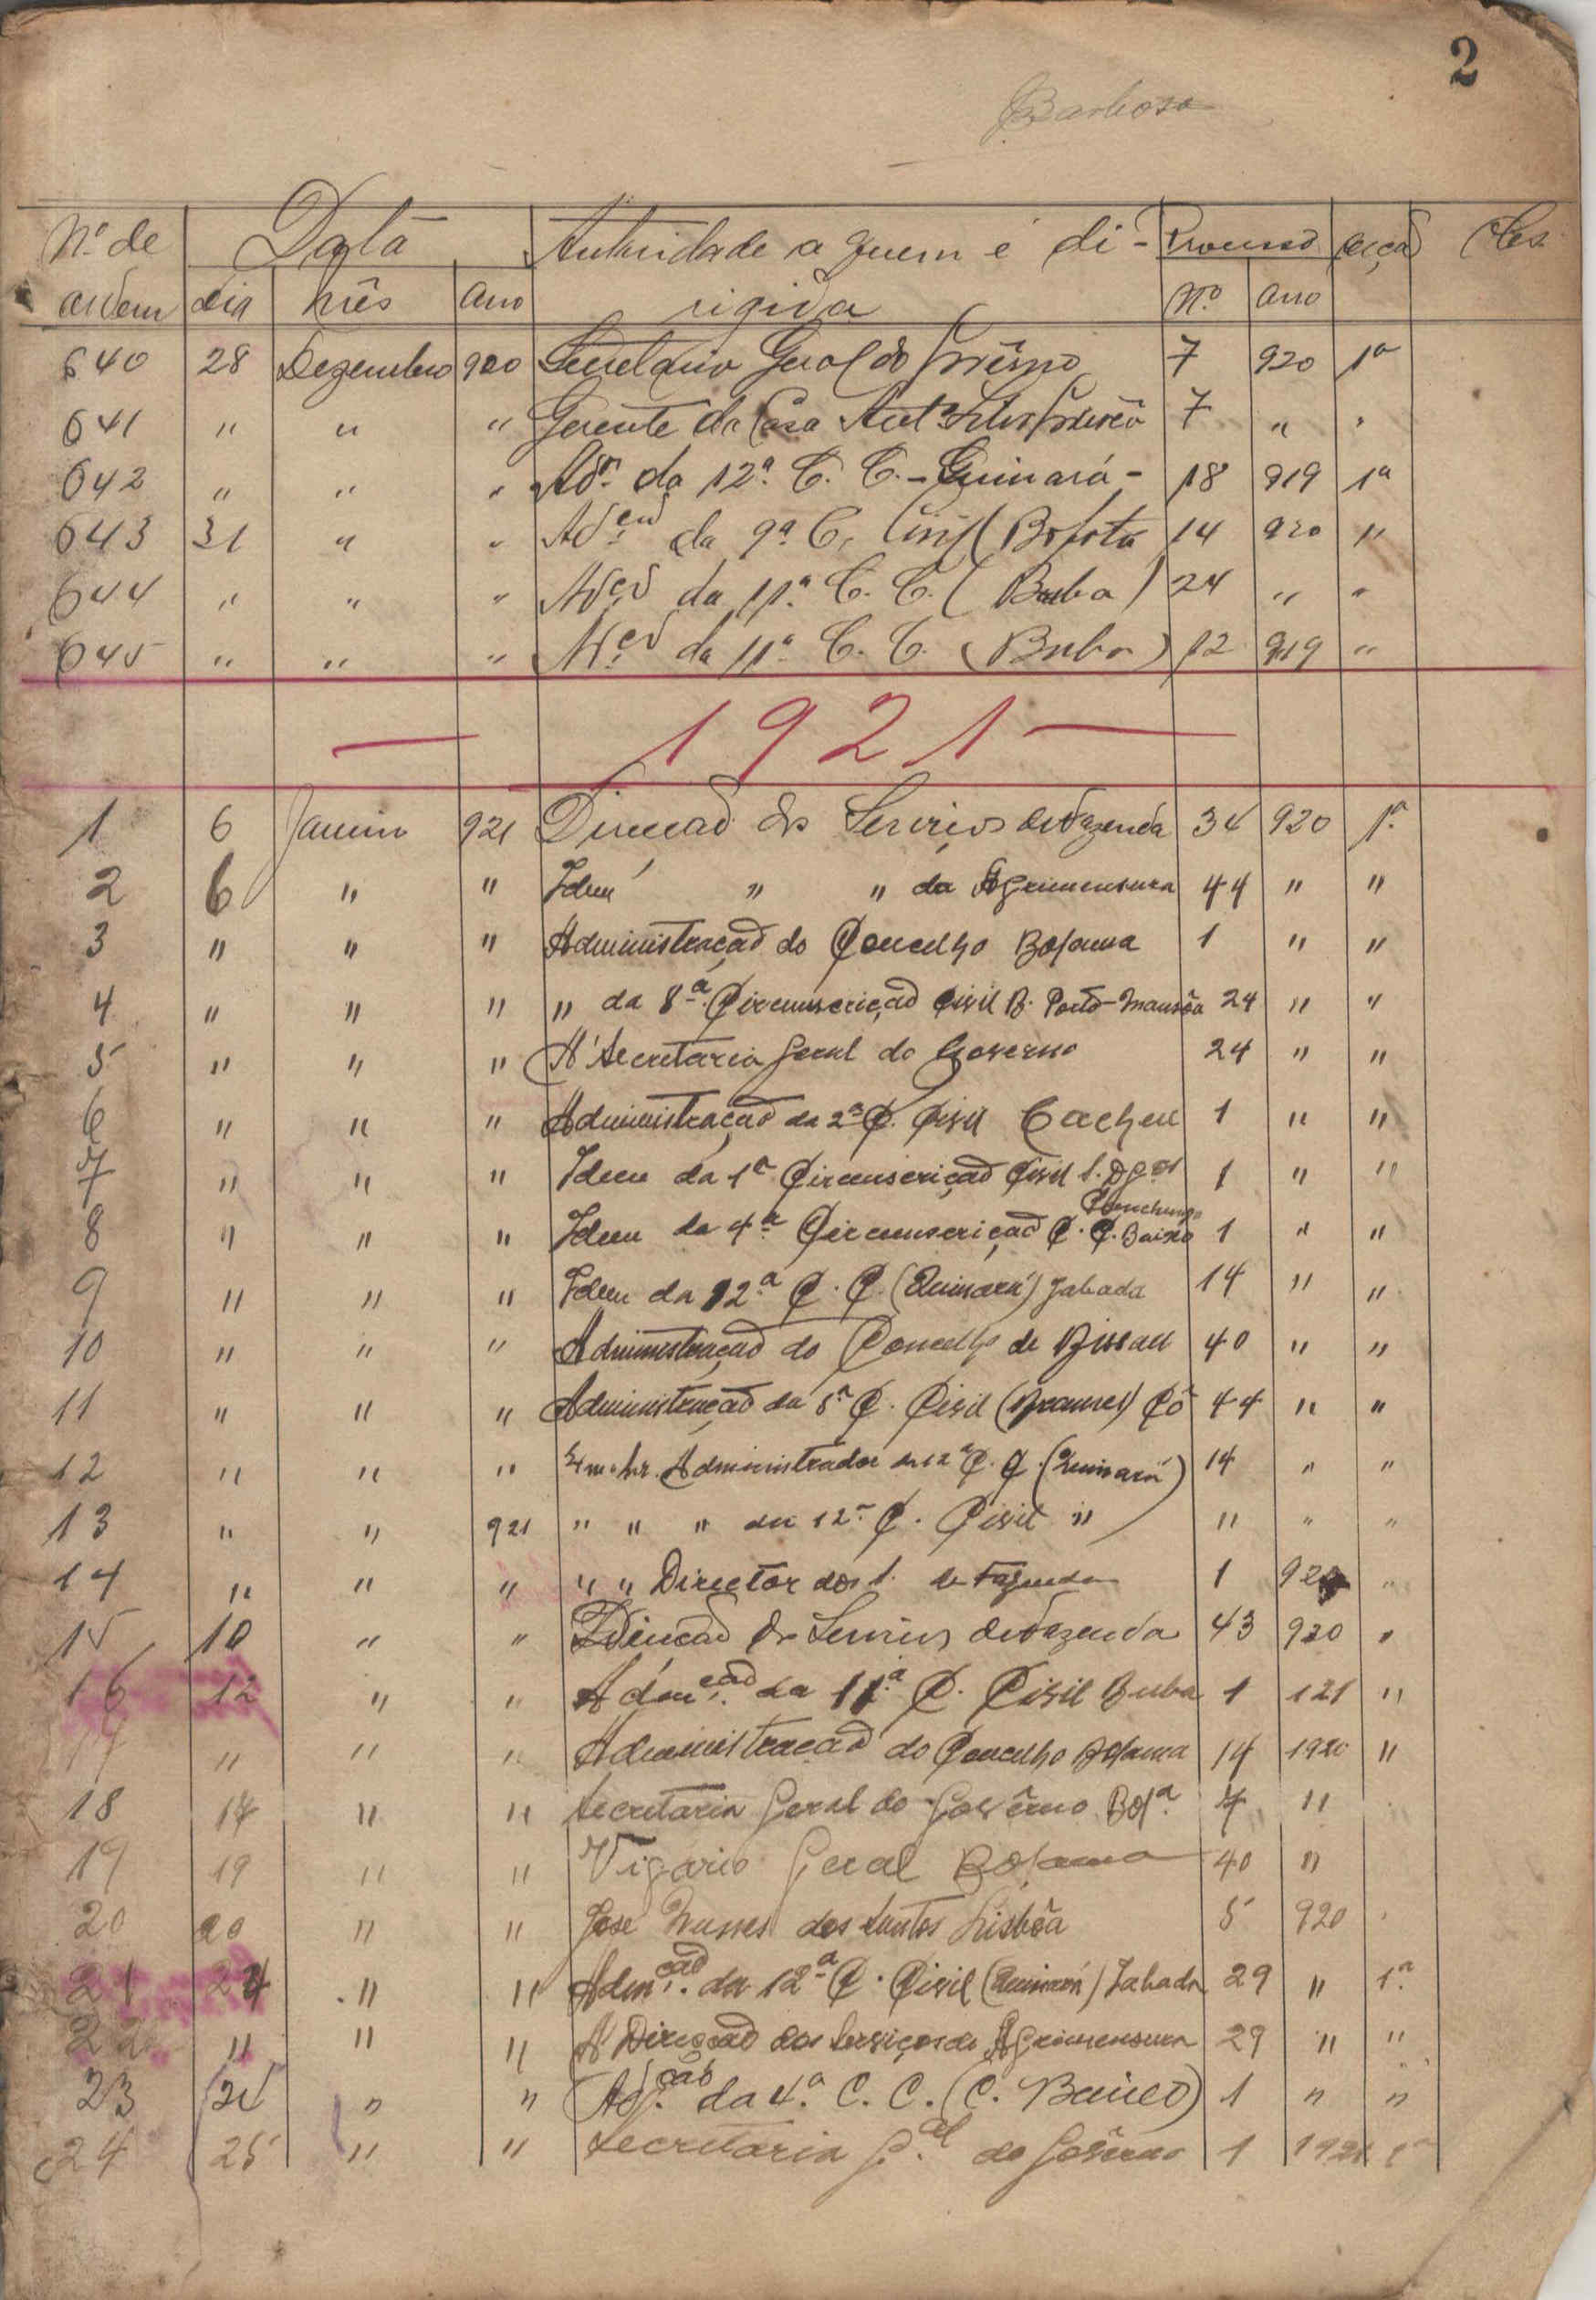 2
Barbosa
Nº de Data Autoridade a quem é di- Processo Secção Obs
ordem dia Mês Ano rigida Nº Ano
640 28 Dezembro 920 Secretario Geral do Govêrno 7 920 1ª
641 " " " Gerente da Casa Antº Silva 7 " "
642 " " " Adm. da 12ª C. C. - Quinará - 18 919 1ª
643 31 " " Adção da 9ª C. Civil Bafatá 14 920 "
644 " " " Adção da 11ª C. C. ( Buba ) 24 " "
645 " " " Adção da 11ª C. C. ( Buba ) 12 919 "
— 1921 —
1 6 Janeiro 921 Direcção dos Serviços de Fazenda 34 920 1ª
2 6 " " Idem " " da Agrimensura 44 " "
3 " " " Administração do Concelho Bolama 1 " "
4 " " " " da 8ª Circunscrição Civil B. Porto-Mansôa 24 " "
5 " " " Á Secretaria Geral do Governo 24 " "
6 " " " Administração da 2ª C. Civil Cacheu 1 " "
7 " " " Idem da 1ª Circunscrição Civil S. Dgos 1 " "
8 " " " Idem da 4ª Circunscrição C. C. Baixo 1 " "
9 " " " Idem da 12ª C. C. (Quinará) Jabada 14 " "
10 " " " Administração do Concelho de Bissau 40 " "
11 " " " Administração da 5ª C. Civil (Brames) Có 44 " "
12 " " " Exmo Sr. Administrador da 12ª C. C. (Quinará) 14 " "
13 " " 921 " " " da 12ª C. Civil " " " "
14 " " " " " Director dos S. de Fazenda 1 "
15 10 " " Direcção dos Serviços de Fazenda 43 920 "
16 12 " " Admção da 11ª C. Civil Buba 1 121 "
17 " " " Administração do Concelho Bolama 14 1920 "
18 14 " " Secretaria Geral do Govêrno Bolª "
19 19 " " Vigário Geral Bolama 40 "
20 20 " " José Nunes dos Santos Lisbôa 5 920 "
21 24 " " Admção da 12ª C. Civil (Quinará) Jabada 29 " 1ª
22 " " " Á Direcção dos Serviços de Agrimensura 29 " "
23 24 " " Adção da 4ª C. C. (C. Baixo) 1 " "
24 25 " " Secretaria G.al do Govêrno 1 1921 1ª